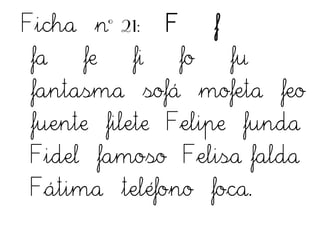 Ficha nº 21: F f
fa fe fi fo fu
fantasma sofá mofeta feo
fuente filete Felipe funda
Fidel famoso Felisa falda
Fátima teléfono foca.